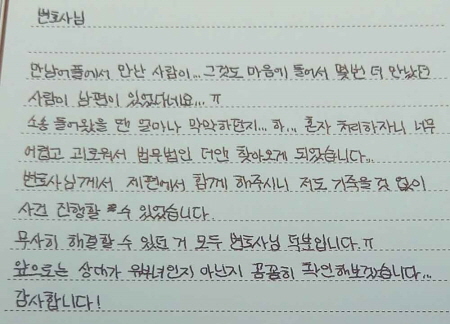 변호사님
만남어플에서 만난 사람이... 그것도 마음에 들어서 몇번 더 만났던
사람이 남편이 있었다네요... ㅠ
소송 들어왔을 땐 얼마나 막막하던지... 하... 혼자 처리하자니 너무
어렵고 괴로워서 법무법인 더앤 찾아오게 되었습니다..
변호사님께서 제편에서 함께 해주시니 저도 기죽을것 없이
사건 진행할 수 있었습니다
무사히 해결할 수 있던 거 모두 변호사님 덕분입니다. ㅠ
앞으로는 상대가 유부녀인지 아닌지 꼼꼼히 확인해보겠습니다...
감사합니다!